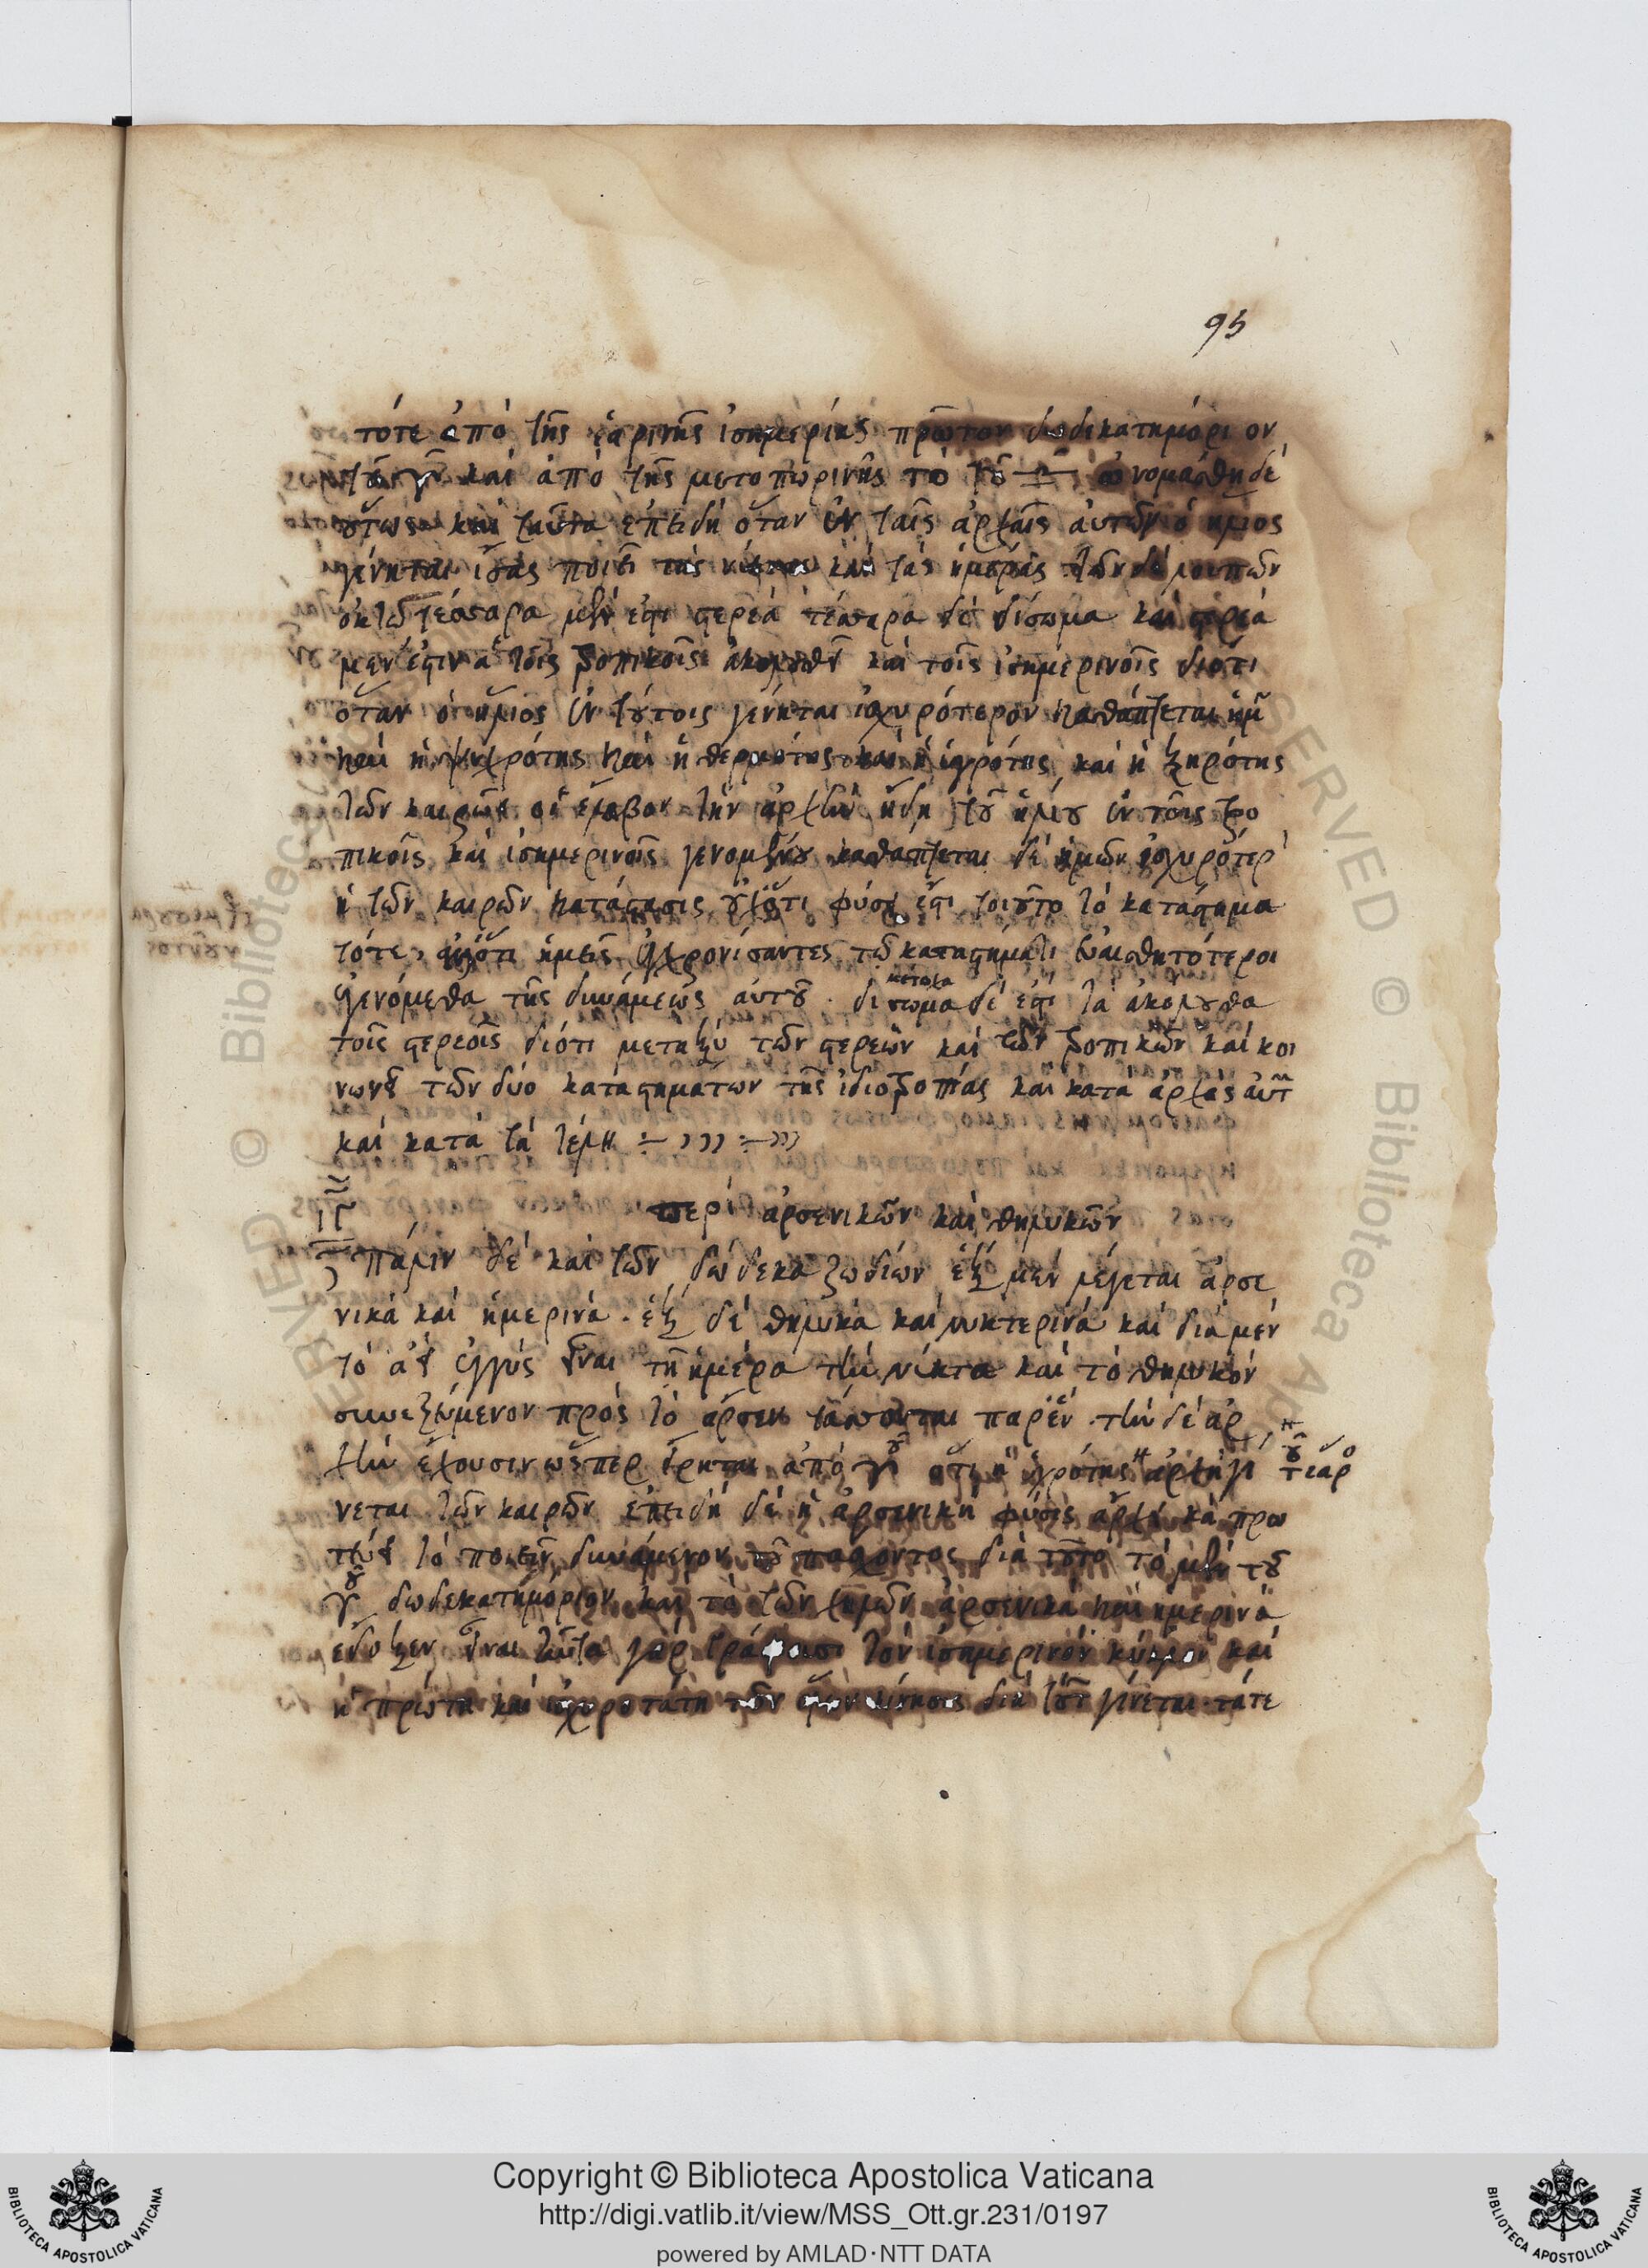 95
τότε ἀπὸ τῆς ἐαρινῆς ἰσημερίας πρῶτον δωδεκατημόριον
τοῦ ♈ καὶ ἀπὸ τῆς μετοπωρινῆς τὸ τοῦ ♎ ὠνομάσθη δὲ
οὕτως καὶ ταῦτα ἐπειδὴ ὅταν ἐν ταῖς ἀρχαῖς αὐτῶν ὁ ἥλιος
γένηται ἴσας ποιεῖ τὰς νύκτας καὶ τὰς ἡμέρας τῶν δὲ λοιπῶν
ὀκτὼ τέσσαρα μέν ἐστι στερεὰ τέσσαρα δὲ δίσωμα καὶ στερεὰ
μέν ἐστιν ἃ τοῖς τροπικοῖς ἀκολουθεῖ καὶ τοῖς ἰσημερινοῖς διότι
ὅταν ὁ ἥλιος ἐν τούτοις γένηται ἰσχυρότερον καθάπτεται ἡμ
καὶ ἡ ψυχρότης καὶ ἡ θερμότης καὶ ἡ ὑγρότης καὶ ἡ ξηρότης
τῶν καιρῶν οἳ ἔλαβον τὴν ἀρχὴν ἤδη τοῦ ἡλίου ἐν τοῖς τρο
πικοῖς καὶ ἰσημερινοῖς γενομένου καθάπτεται δὲ ἡμῶν ἰσχυρότερ
ἡ τῶν καιρῶν κατάστασις οὐχ ὅτι φύσει ἐστὶ τοιοῦτο τὸ κατάστημα
τότε, ἀλλ' ὅτι ἡμεῖς ἐγχρονίσαντες τῷ καταστήματι εὐαισθητότεροι
γενόμεθα τῆς δυνάμεως αὐτοῦ. δίσωμα δέ ἐστι τὰ ἀκόλουθα
τοῖς στερεοῖς διότι μεταξὺ τῶν στερεῶν καὶ τῶν τροπικῶν καὶ κοι
νωνεῖ τῶν δύο καταστημάτων τῆς ἰδιοτροπίας καὶ κατὰ ἀρχὰς αὐτ
καὶ κατὰ τὰ τέλη
ιγ
περὶ ἀρσενικῶν καὶ θηλυκῶν
πάλιν δὲ καὶ τῶν δώδεκα ζωδίων ἓξ μὲν λέγεται ἀρσε
νικὰ καὶ ἡμερινά. ἓξ δὲ θηλυκὰ καὶ νυκτερινὰ καὶ διὰ μὲν
τὸ ἀεὶ ἐγγὺς εἶναι τῇ ἡμέρᾳ τὴν νύκτα καὶ τὸ θηλυκὸν
συνεζευγμένον πρὸς τὸ ἄρσεν τάσσονται παρ' ἕν. τὴν δὲ ἀρ
χὴν ἔχουσιν ὥσπερ εἴρηται ἀπὸ ♈ ὅτι ἡ ὑγρότης ἀρχὴ γί
νεται τῶν καιρῶν ἐπειδὴ δὲ ἡ ἀρσενικὴ φύσις ἄρχει καὶ πρω
τεύει τὸ ποιεῖν δυνάμενον τοῦ πάσχοντος διὰ τοῦτο τὸ μὲν τοῦ
♈ δωδεκατημόριον καὶ τὸ τῶν χηλῶν ἀρσενικὰ καὶ ἡμερινὰ
ἔδοξεν εἶναι ταῦτα γὰρ γράφουσι τὸν ἰσημερινὸν κύκλον καὶ
ἡ πρώτη καὶ ἰσχυροτάτη τῶν ὅλων κίνησις διὰ τούτ γίνεται τάτε
Copyright © Biblioteca Apostolica Vaticana
http://digi.vatlib.it/view/MSS_Ott.gr.231/0197
powered by AMLAD·NTT DATA
BIBLIOTECA APOSTOLICA VATICANA
BIBLIOTECA APOSTOLICA VATICANA